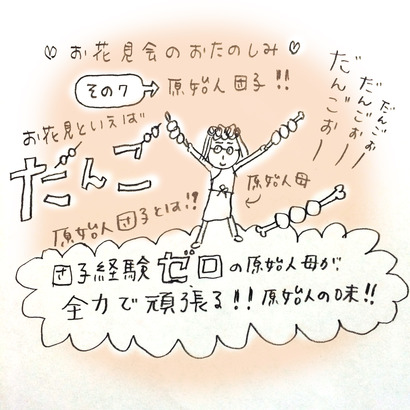 お花見会のおたのしみ
その7 → 原始人団子!!
だんごぉー
だんごぉー
だんごぉー
お花見といえば
だんご
原始人母
原始人団子とは!!
団子経験ゼロの原始人母が
全力で頑張る!!原始人の味!!